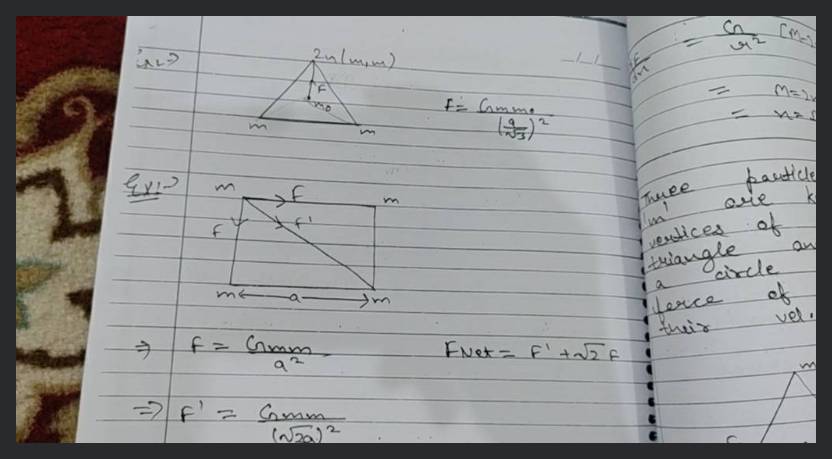 2m (m,m)
F
m₀
m m
F = Gmm₀
(a/√3)²
Ex:-
m F m
F F'
m a m
⇒ F = Gmm
a²
FNet = F' + √2 F
⇒ F' = Gmm
(√2a)²
= Gm
r²
=
=
Three particle
'm' are k
vertices of
triangle an
a circle
force of
their vel.
m